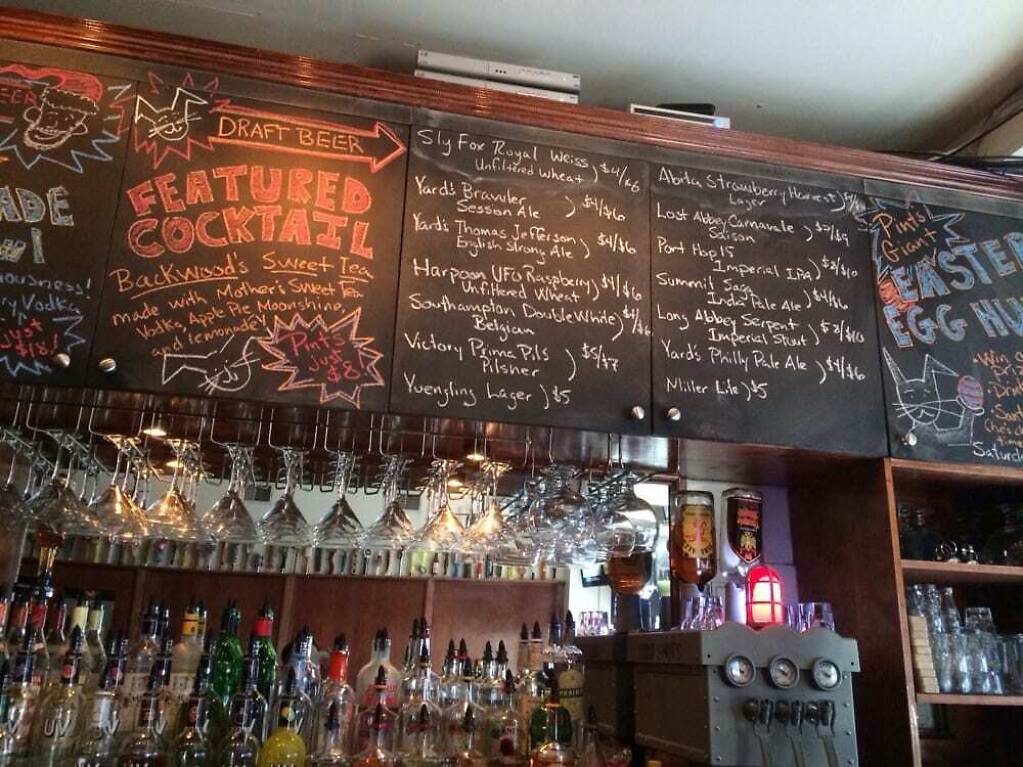 BEER
ADE
!
y Vodka,
just
$18!
DRAFT BEER
FEATURED
COCKTAIL
Backwood's Sweet Tea
made with Mother's Sweet Tea
Vodka, Apple Pie Moonshine,
and lemonade!
Pints
just
$8!
Sly Fox Royal Weiss
Unfiltered Wheat ) $4/$6
Yard's Brawler
Session Ale ) $4/$6
Yard's Thomas Jefferson
English Strong Ale ) $4/$6
Harpoon UFO Raspberry
Unfiltered Wheat ) $4/$6
Southampton Double White
Belgian ) $4/$6
Victory Prima Pils
Pilsner ) $5/$7
Yuengling Lager ) $5
Abita Strawberry Harvest
Lager )
Lost Abbey Carnavale
Saison ) $7/$9
Port Hop 15
Imperial IPA ) $8/$10
Summit Saga
India Pale Ale ) $4/$6
Long Abbey Serpent
Imperial Stout ) $8/$10
Yard's Philly Pale Ale ) $4/$6
Miller Lite ) $5
Pints!
Giant
EASTE
EGG HU
Win
Saturda
UV
UV